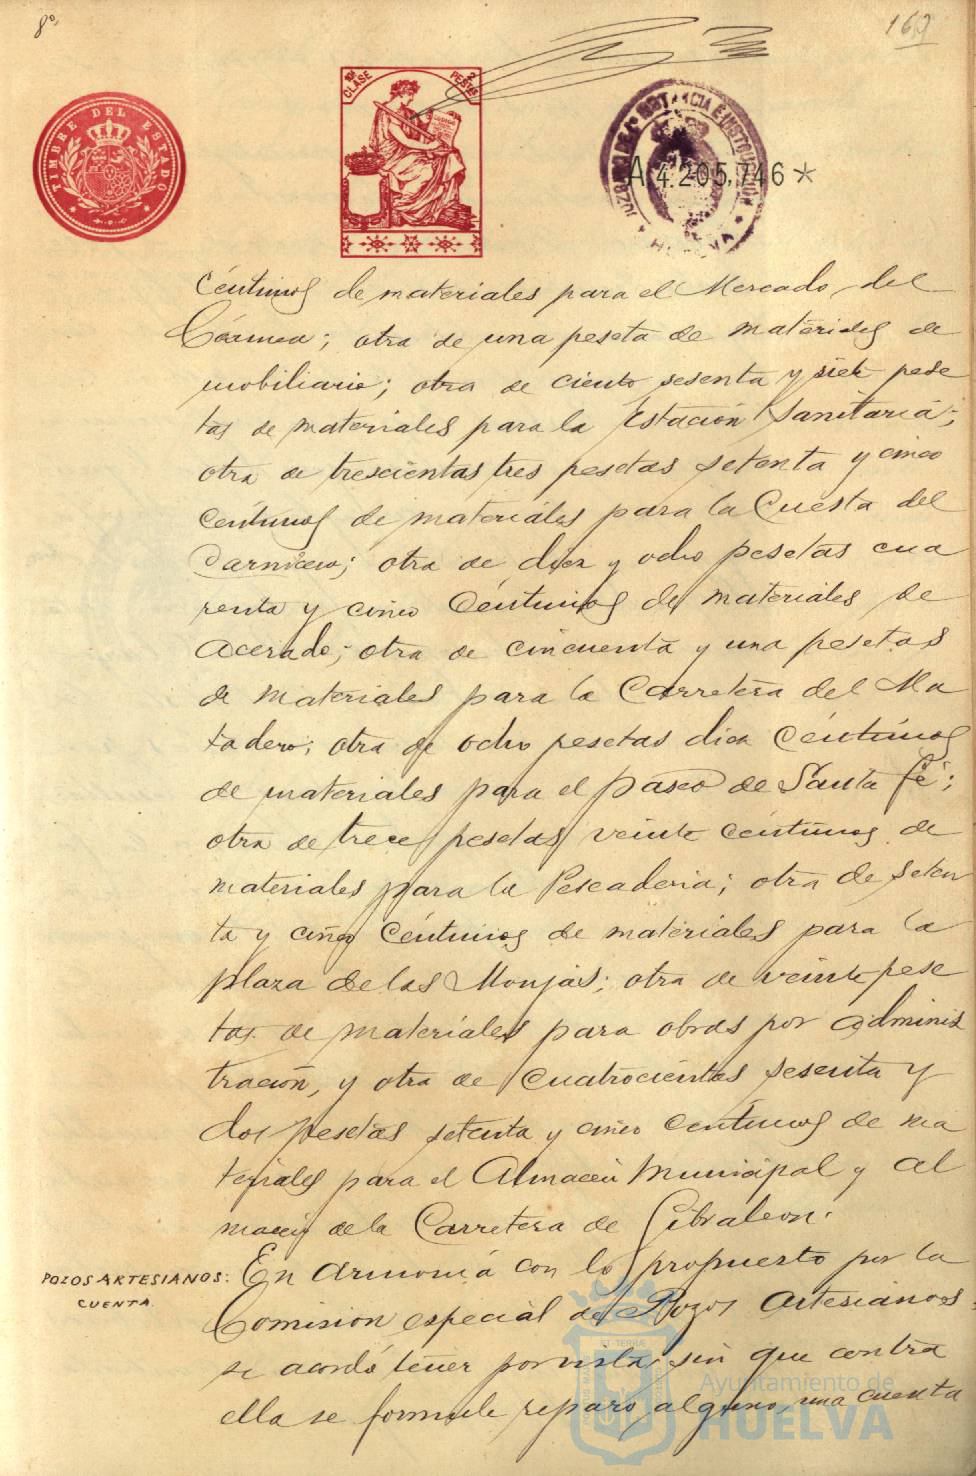 8º
160
TIMBRE DEL ESTADO
10ª CLASE
2 PESTAS
JUZGADO DE 1ª INSTANCIA É INSTRUCCIÓN
HUELVA
A 4.205,746 *
céntimos de materiales para el Mercado del
Cármen; otra de una peseta de materiales de
mobiliario; otra de ciento sesenta y siete pese
tas de materiales para la Estación Sanitaria;
otra de trescientas tres pesetas setenta y cinco
céntimos de materiales para la Cuesta del
Carnicero; otra de diez y ocho pesetas cua
renta y cinco céntimos de materiales de
acerado; otra de cincuenta y una pesetas
de materiales para la Carretera del Ma
tadero; otra de ocho pesetas diez céntimos
de materiales para el paseo de Santa Fé;
otra de trece pesetas veinte céntimos de
materiales para la Pescaderia; otra de seten
ta y cinco céntimos de materiales para la
plaza de las Monjas; otra de veinte pese
tas de materiales para obras por adminis
tración, y otra de cuatrocientas sesenta y
dos pesetas setenta y cinco céntimos de ma
teriales para el Almacén Municipal y al
macén de la Carretera de Gibraleon.
POZOS ARTESIANOS:
CUENTA.
En armonía con lo propuesto por la
Comision especial de Pozos Artesianos,
se acordó tener por vista, sin que contra
ella se formule reparo alguno, una cuenta
Ayuntamiento de
HUELVA